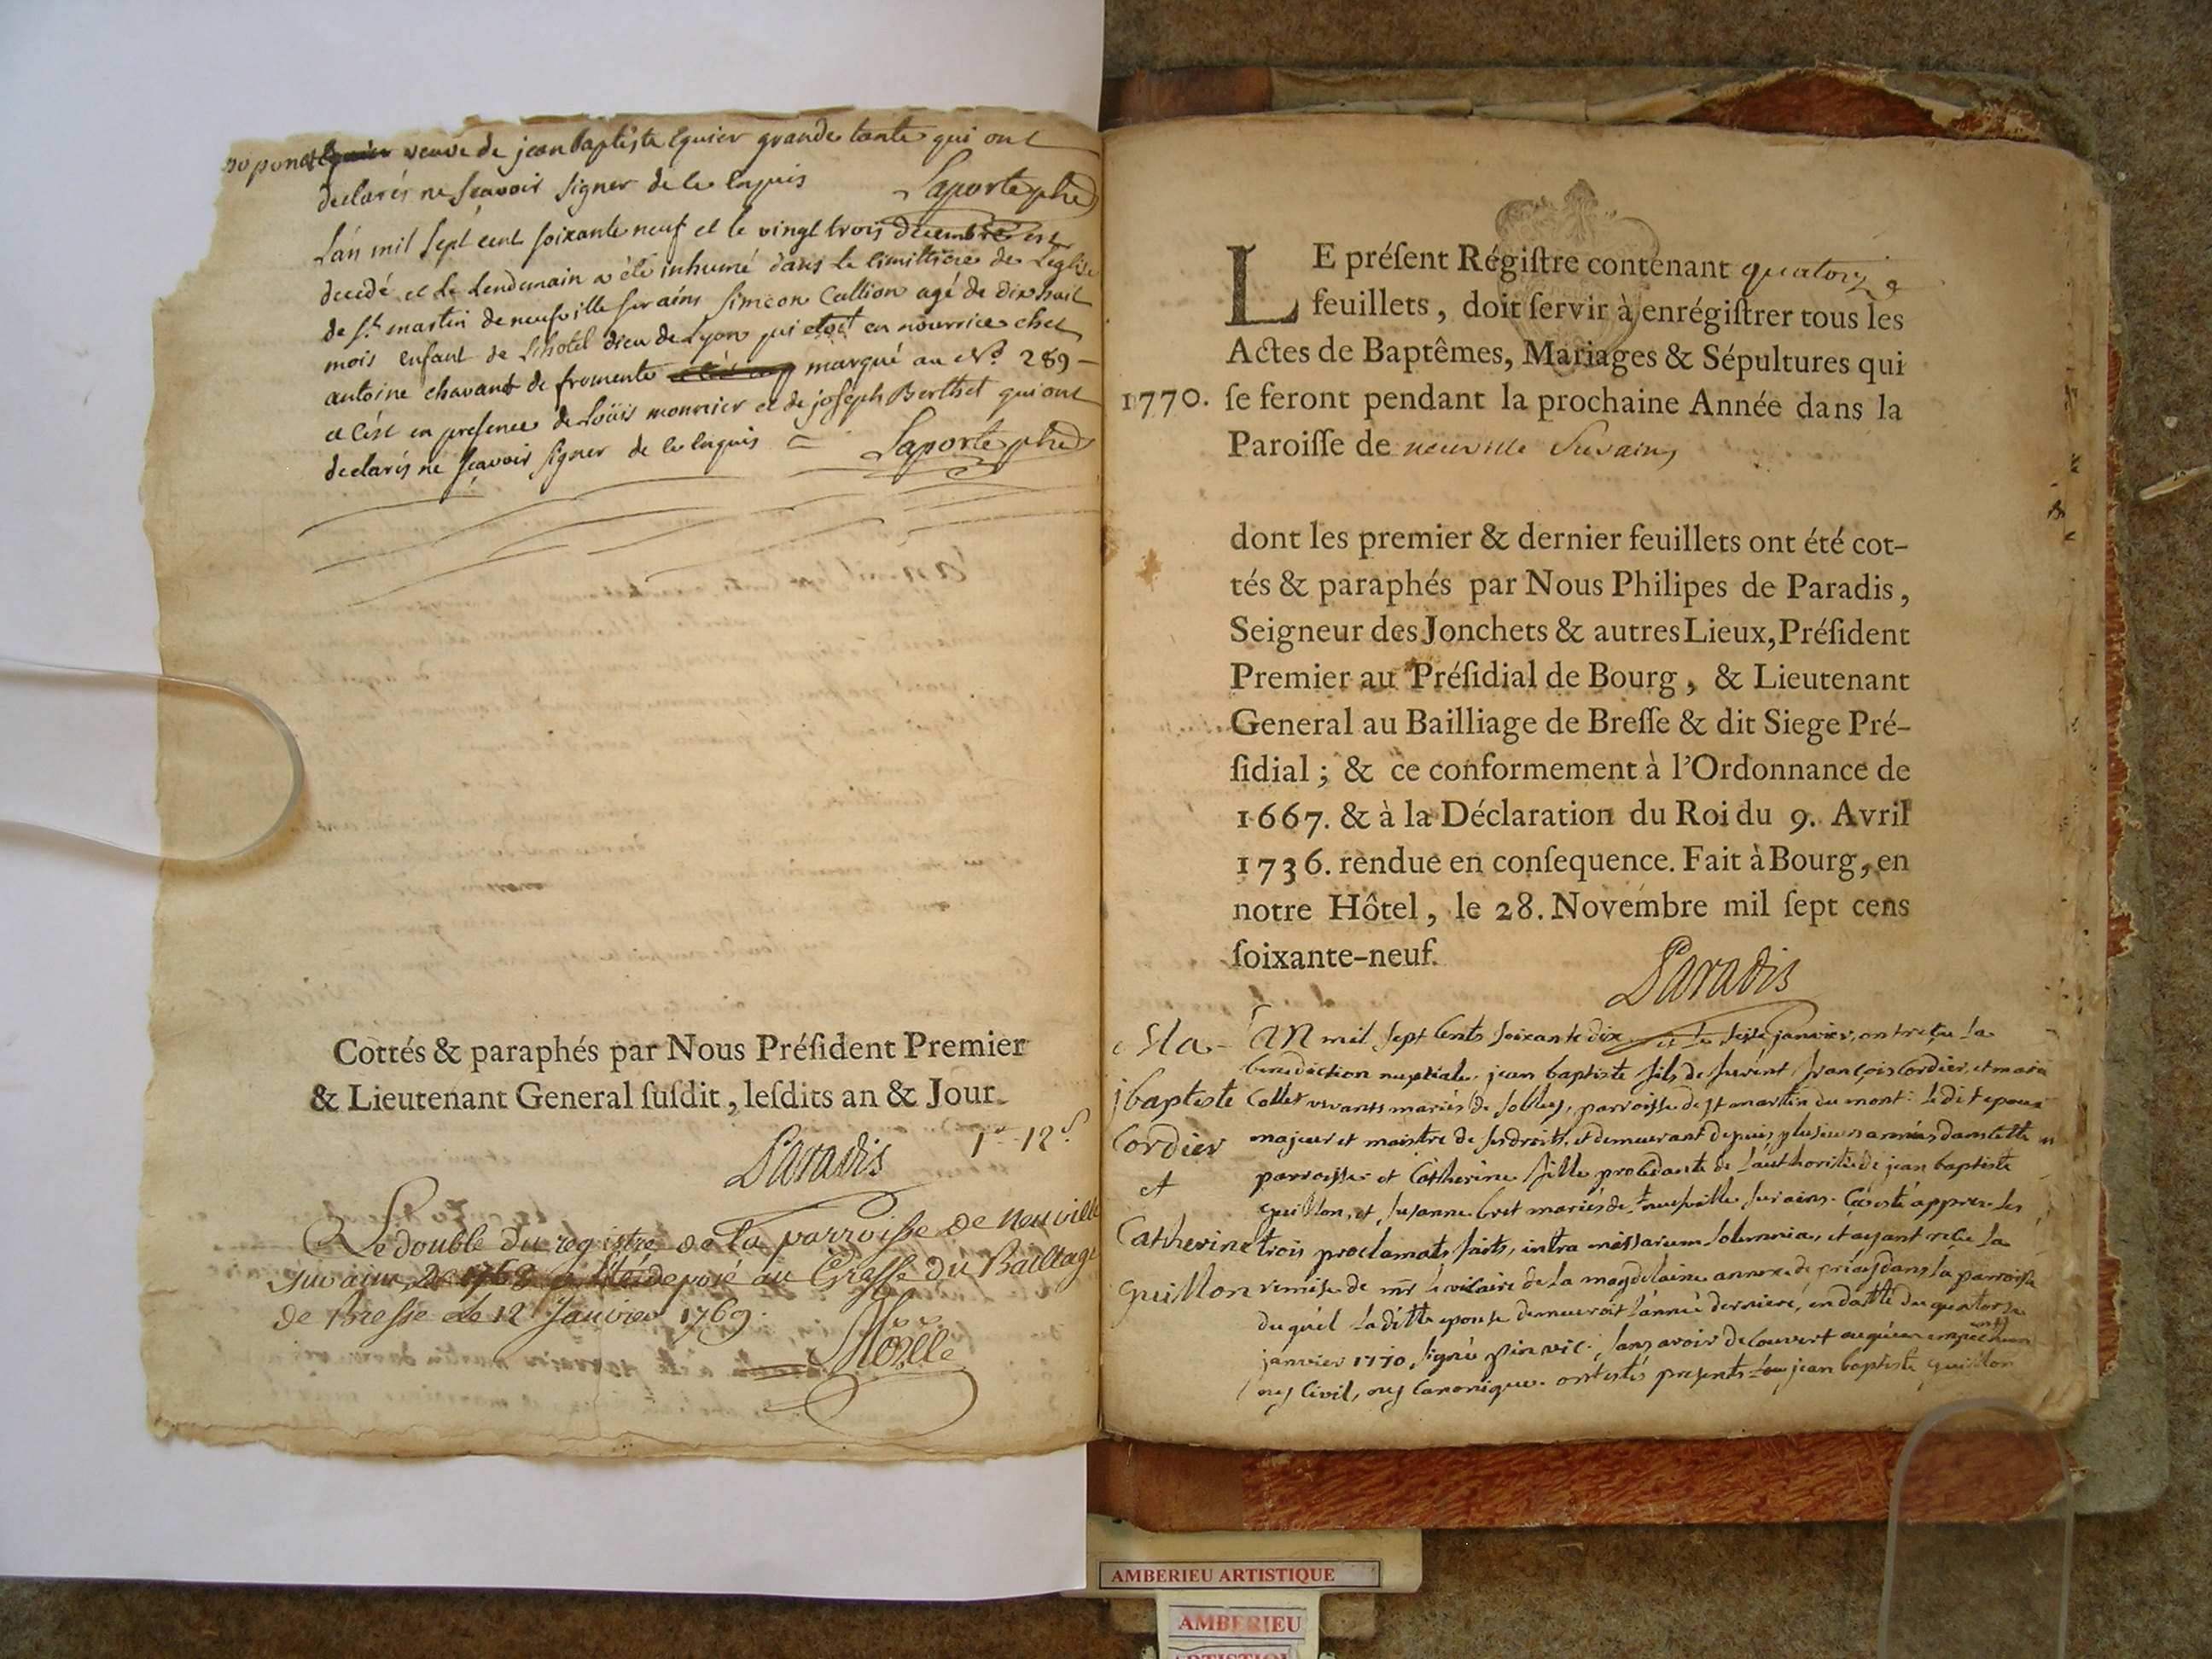 veuve de jean baptiste Equier grande tante qui ont
declarés ne sçavoir signer de ce enquis Laporte ptre
L'an mil sept cent soixante neuf et le vingt trois decembre est
decedé et le lendemain a été inhumé dans le cimittiere de L'eglise
de st martin de neufville sur ains simeon Callion agé de dix huit
mois enfant de l'hotel dieu de Lyon qui etoit en nourrice chez
antoine chavant de fromente marqué au No. 289 -
et c'est en presence de Loüis monnier et de joseph Berthet qui ont
declarés ne sçavoir signer de ce enquis = Laporte ptre
Cottés & paraphés par Nous Préſident Premier
& Lieutenant General ſuſdit, leſdits an & Jour.
Paradis
Le double du registre de la parroisse de neuville
de 1768 a été deposé au Greffe du Bailliage
de Bresse le 12 Janvier 1769.
LE préſent Régiſtre contenant quatorze
feuillets, doit ſervir à enrégiſtrer tous les
Actes de Baptêmes, Mariages & Sépultures qui
1770. ſe feront pendant la prochaine Année dans la
Paroiſſe de neuville Surains
dont les premier & dernier feuillets ont été cot-
tés & paraphés par Nous Philipes de Paradis,
Seigneur des Jonchets & autres Lieux, Préſident
Premier au Préſidial de Bourg, & Lieutenant
General au Bailliage de Breſſe & dit Siege Pré-
ſidial; & ce conformement à l'Ordonnance de
1667. & à la Déclaration du Roi du 9. Avril
1736. rendue en conſequence. Fait à Bourg, en
notre Hôtel, le 28. Novembre mil ſept cens
ſoixante-neuf.
Paradis
jbaptiste
Cordier
et
Catherine
Guillon
L'AN mil sept cents soixante dix et le seize janvier, ont reçu la
benediction nuptiale, jean baptiste fils de françois Cordier, et marie
Collet vivants mariés de Soblay, parroisse de st martin du mont: Ledit epoux
majeur et maistre de ses droits, et demeurant depuis plusieurs années dans cette
parroisse et Catherine fille procedante de l'authorité de jean baptiste
guillon, et susanne bret mariés de neufville sur ains. Ça esté appres les
trois proclamats faits, intra missarum solemnia, et ayant reçu la
remise de mr le vicaire de la magdelaine annexe de priay dans la parroisse
du quel laditte epouse demeuroit l'année derniere, en datte du quatorze
janvier 1770, signé pin vic: sans avoir decouvert auqun empechement
ny Civil, ny Canonique. ont estés presents jean baptiste guillon
AMBERIEU ARTISTIQUE
AMBERIEU
ARTISTIQUE